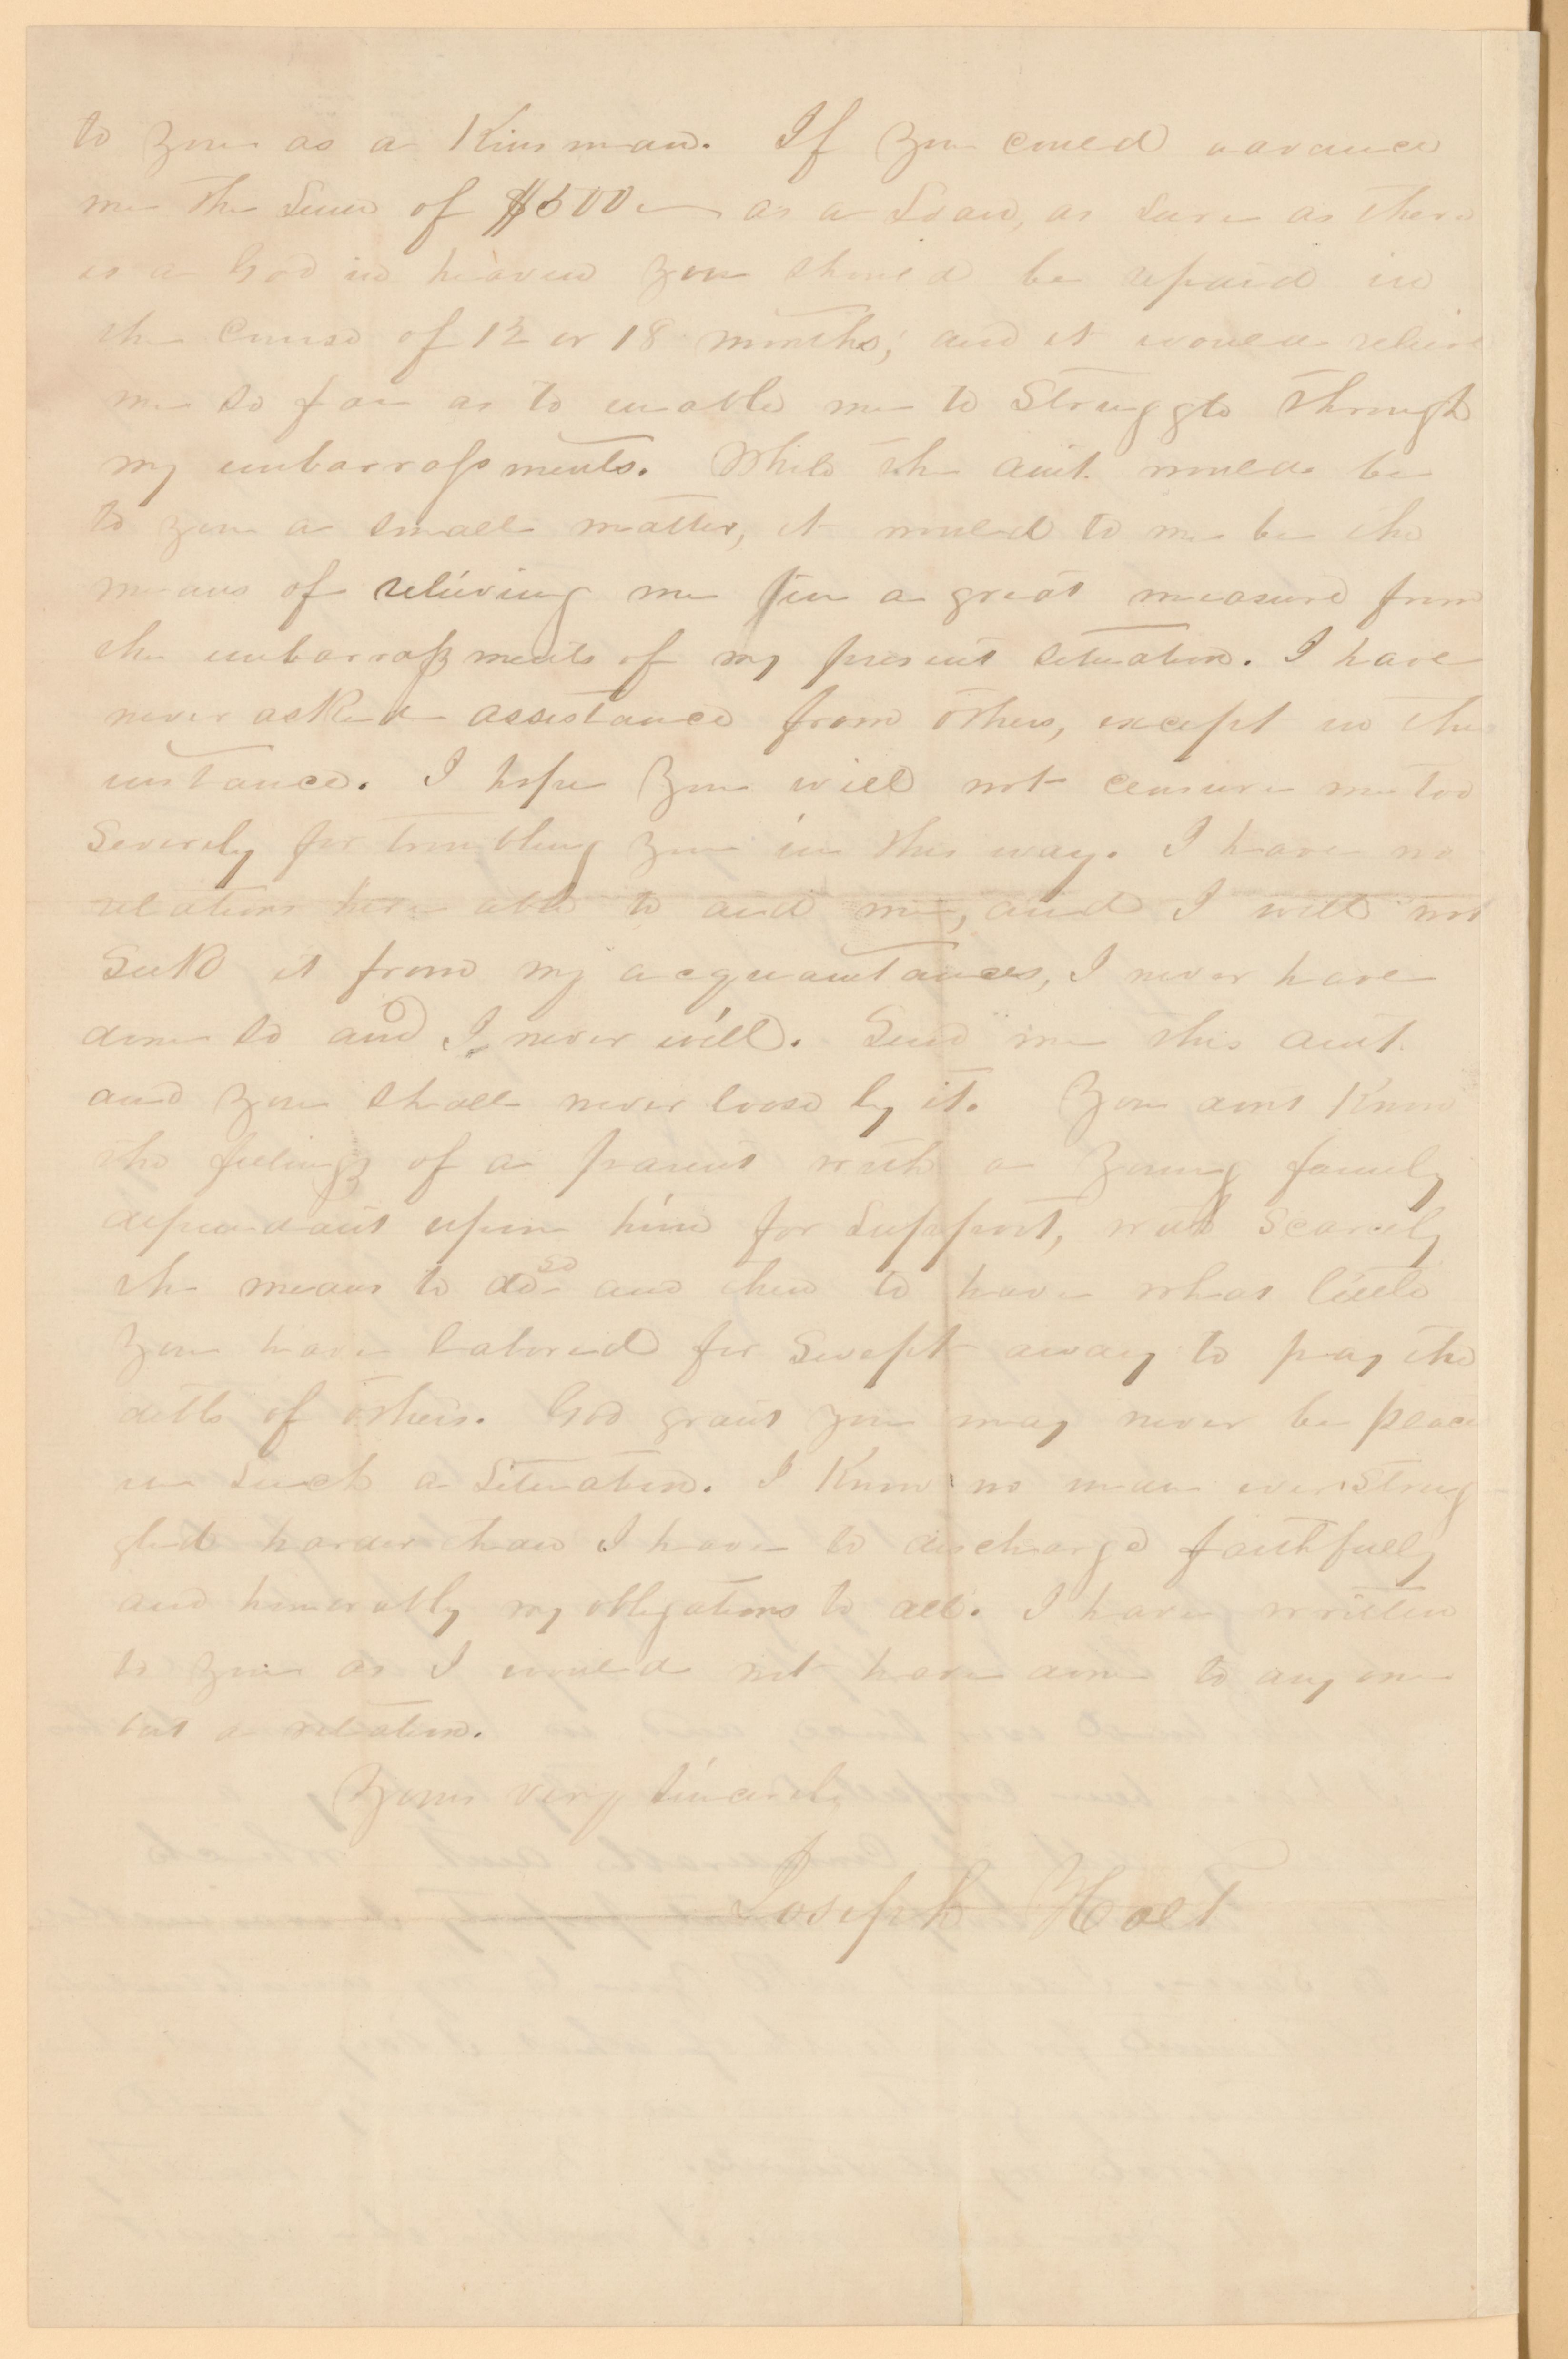 to you as a Kinsman. If you could advance
me the Sum of $500 as a Loan, as sure as there
is a God in heaven you should be repaid in
the course of 12 or 18 months; and it would relieve
me so far as to enable me to Struggle through
my embarrassments. While the amt. would be
to you a small matter, it would to me be the
means of relieving me in a great measure from
the embarrassments of my present situation. I have
never asked assistance from others, except in this
instance. I hope you will not censure me too
Severely for troubling you in this way. I have no
relations here able to aid me, and I will not
Seek it from my acquaintances, I never have
done so and I never will. Send me this amt.
and you shall never loose by it. You dont Know
the feelings of a parent with a young family
dependant upon him for support, with scarcely
the means to do so and then to have what little
you have labored for swept away to pay the
debts of others. God grant you may never be place
in such a Situation. I Know no man ever strug-
gled harder than I have to discharge faithfully
and honorably my obligations to all. I have written
to you as I would not have done to any one
but a relation.
Yours very sincerely
Joseph Holt